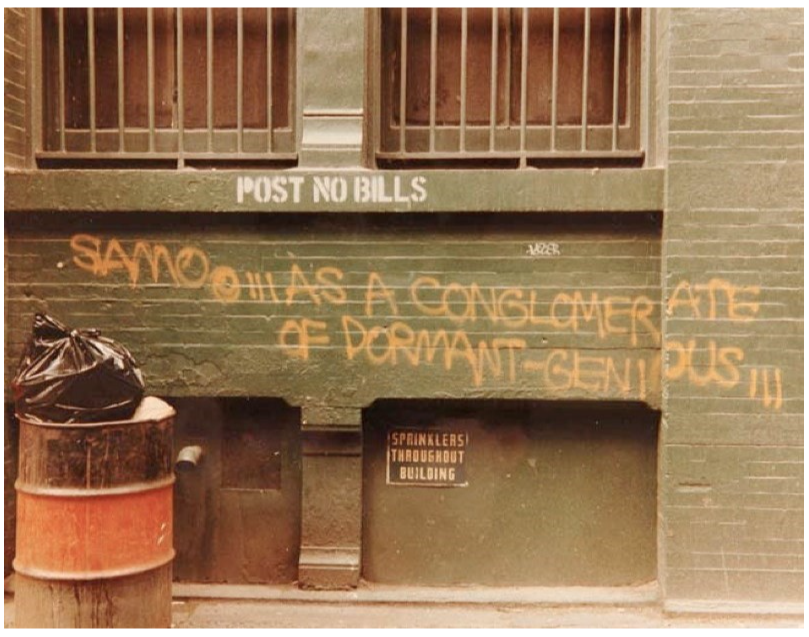 POST NO BILLS
SAMO© !!! AS A CONGLOMERATE
OF DORMANT-GENIOUS !!!
SPRINKLERS
THROUGHOUT
BUILDING